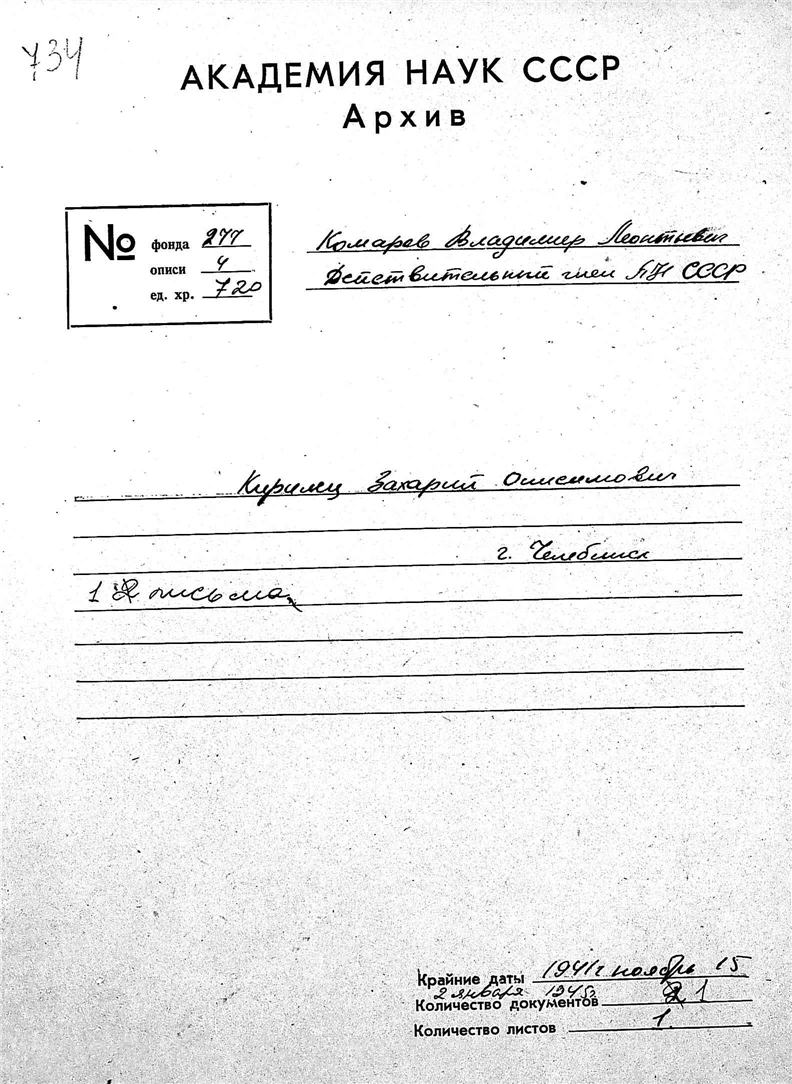 734
АКАДЕМИЯ НАУК СССР
Архив
№
фонда 277
описи 4
ед. хр. 720
Комаров Владимир Леонтьевич
Действительный член АН СССР
Захарий Онисимович
г. Челябинск
1 2 письма
Крайние даты 1941г ноябрь 15
2 января 1945г
Количество документов 2 1
Количество листов 1